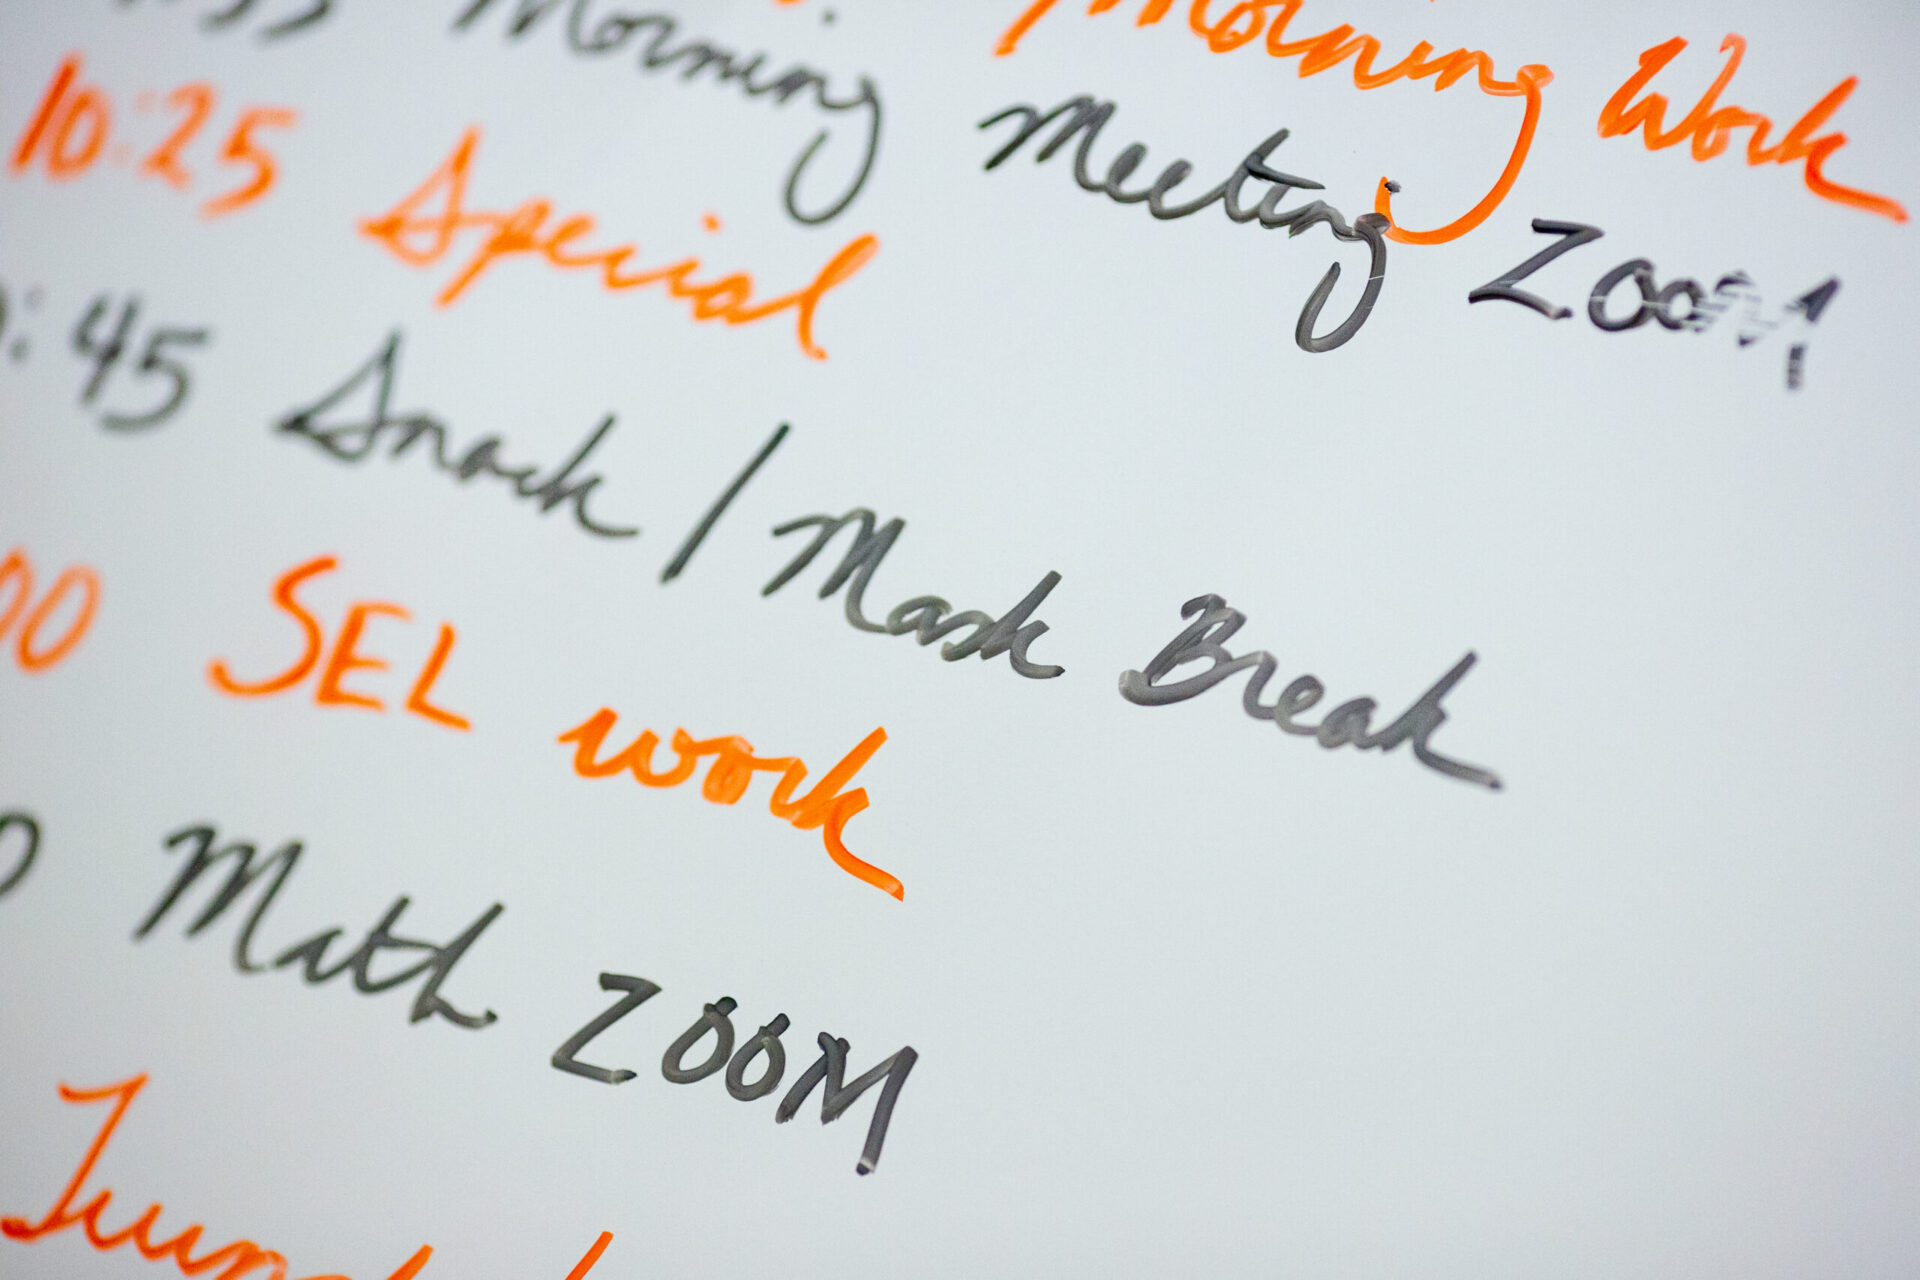 Morning Work
Morning Meeting ZOOM
10:25 Special
:45 Snack / Mask Break
00 SEL work
0 Math ZOOM